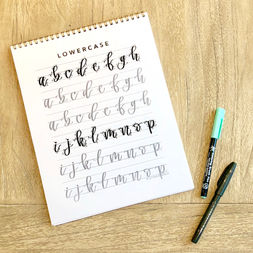 LOWERCASE
a b c d e f g h
a b c d e f g h
a b c d e f g h
i j k l m n o p
i j k l m n o p
i j k l m n o p